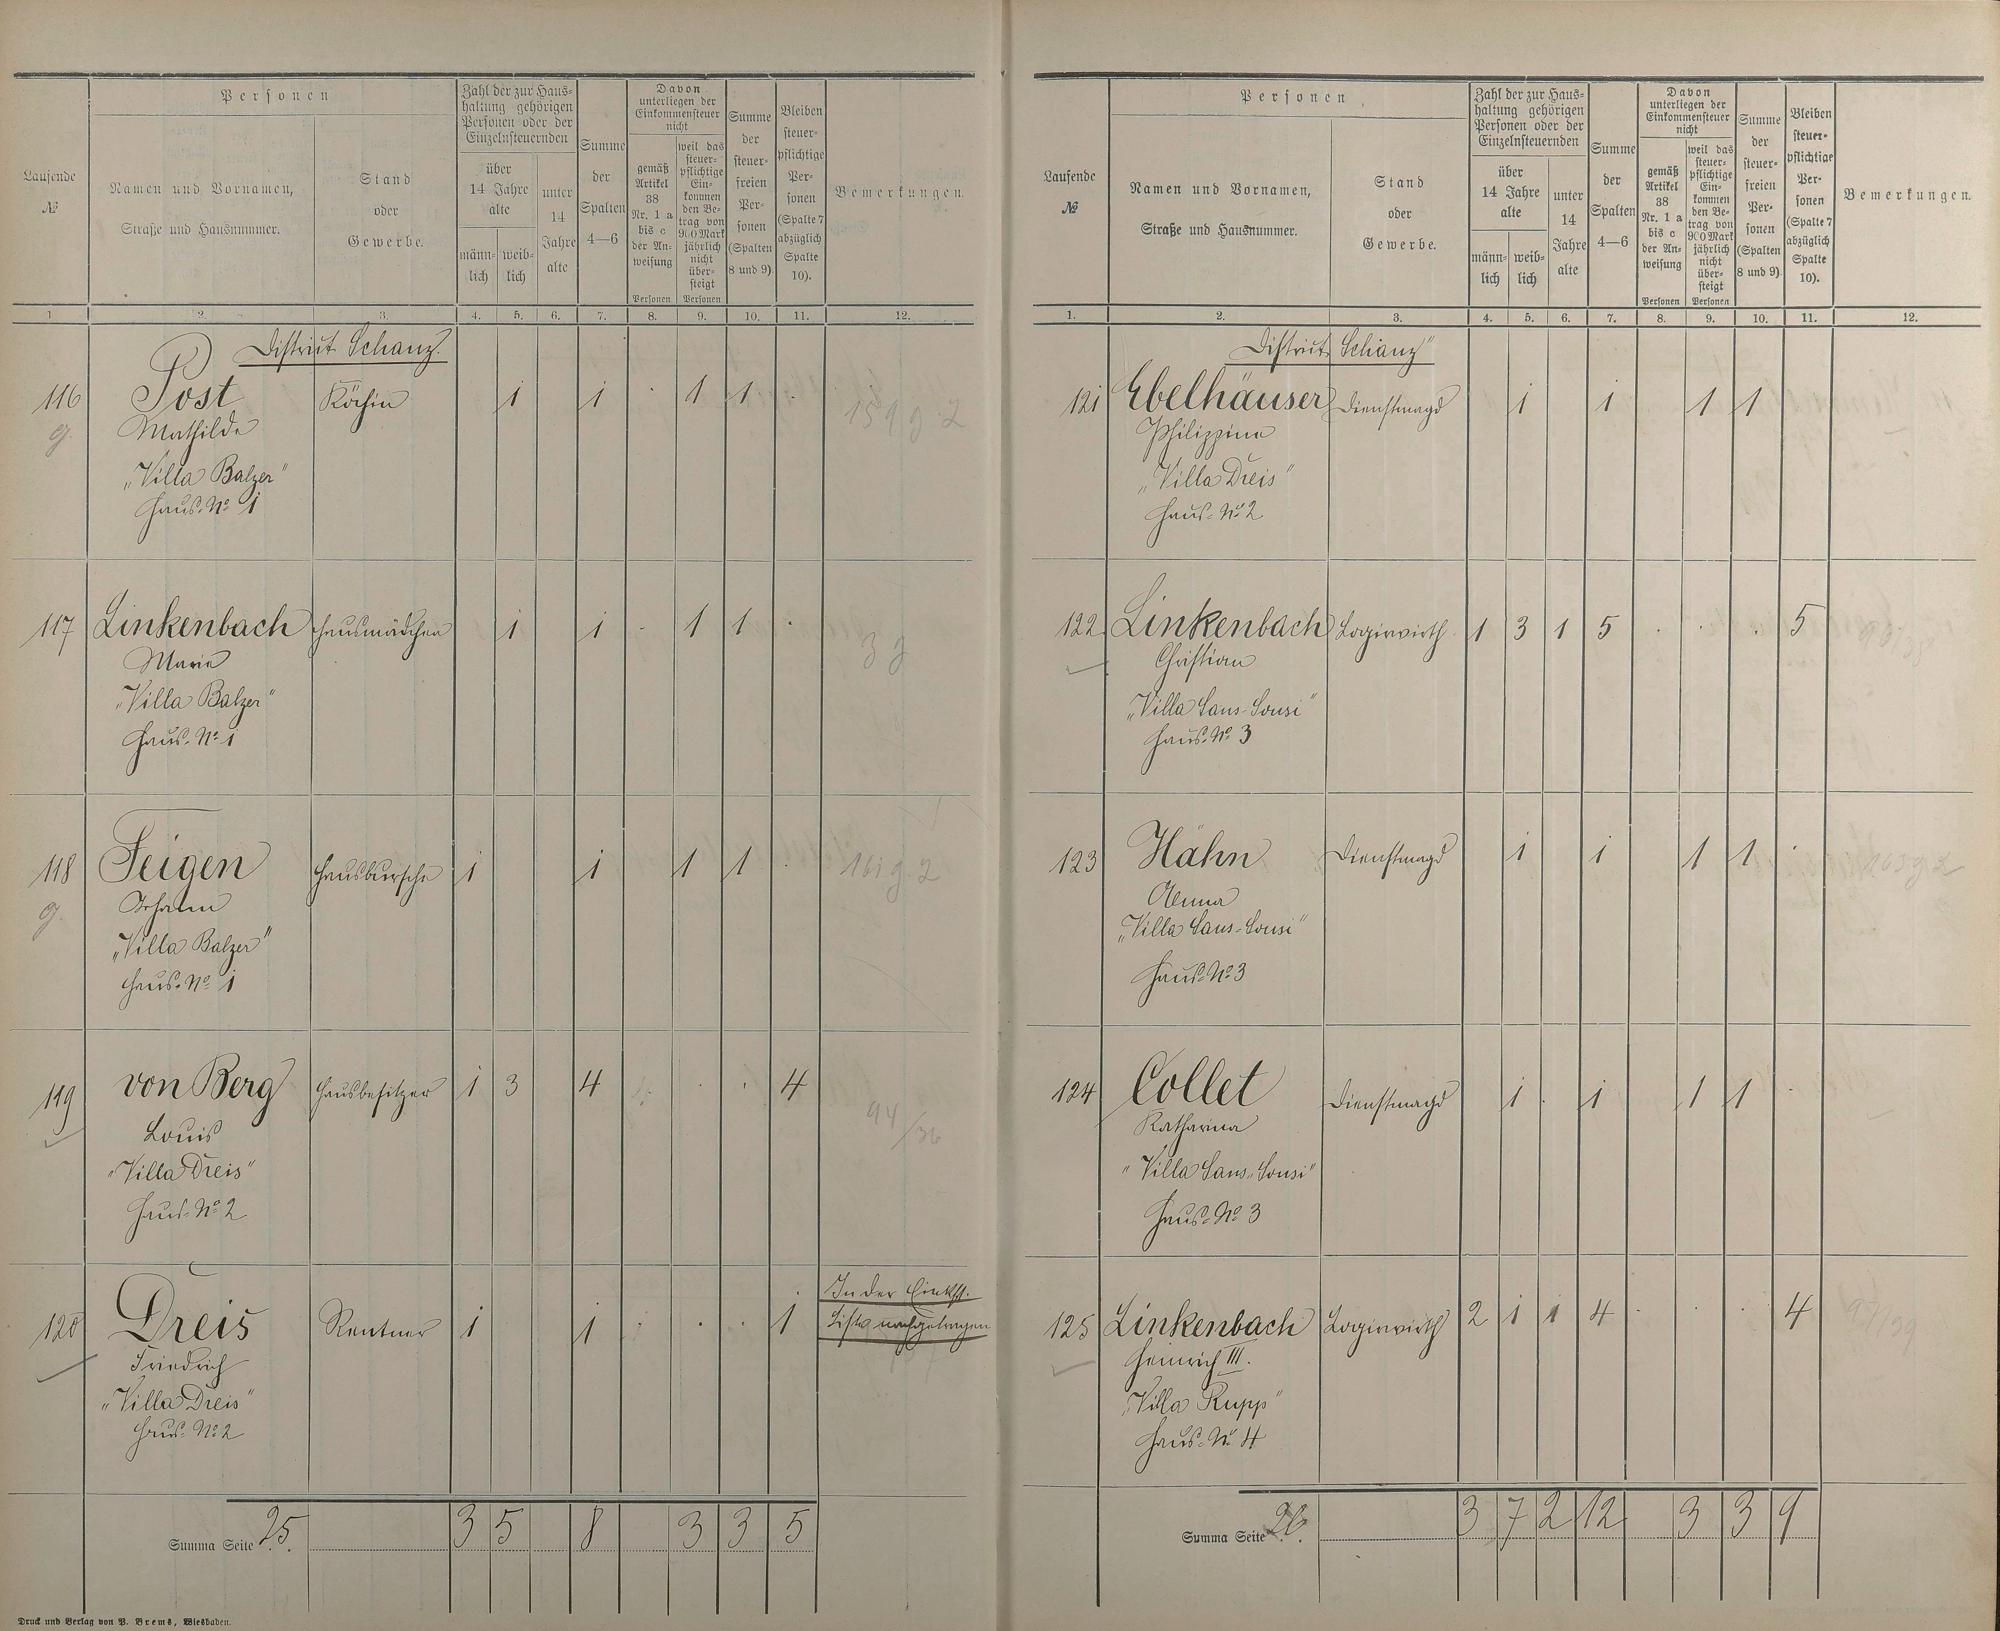 Personen
Laufende
№
Namen und Vornamen,
Straße und Hausnummer.
Stand
oder
Gewerbe.
Zahl der zur Haus-
haltung gehörigen
Personen oder der
Einzelnsteuernden
über
14 Jahre
alte
männ-
lich
weib-
lich
unter
14
Jahre
alte
Summe
der
Spalten
4—6
Davon
unterliegen der
Einkommensteuer
nicht
gemäß
Artikel
38
Nr. 1 a
bis c
der An-
weisung
Personen
weil das
steuer-
pflichtige
Ein-
kommen
den Be-
trag von
900 Mark
jährlich
nicht
über-
steigt
Personen
Summe
der
steuer-
freien
Per-
sonen
(Spalten
8 und 9)
Bleiben
steuer-
pflichtige
Per-
sonen
(Spalte 7
abzüglich
Spalte
10).
Bemerkungen.
1 2. 3. 4. 5. 6. 7. 8. 9. 10. 11. 12.
District Schanz.
116 Post Köchin 1 1 . 1 1 . 159 g 2
g. Mathilde
„Villa Balzer"
Haus-No 1
117 Linkenbach Hausmädchen 1 1 . 1 1 . 3 g
Marie
„Villa Balzer"
Haus-No 1
118 Feigen Hausbursche 1 1 1 1 . 161 g 2
g. Johann
„Villa Balzer"
Haus-No 1
119 von Berg Hausbesitzer 1 3 4 . . 4 94/36
Louis
„Villa Dreis"
Haus-No 2
120 Dreis Rentner 1 1 . . . 1 In der Einkst.
Liste nachgetragen
Friedrich
„Villa Dreis"
Haus-No 2
Summa Seite 25. 3 5 8 3 3 5
Druck und Verlag von P. Brems, Wiesbaden.
Personen
Laufende
№
Namen und Vornamen,
Straße und Hausnummer.
Stand
oder
Gewerbe.
Zahl der zur Haus-
haltung gehörigen
Personen oder der
Einzelnsteuernden
über
14 Jahre
alte
männ-
lich
weib-
lich
unter
14
Jahre
alte
Summe
der
Spalten
4—6
Davon
unterliegen der
Einkommensteuer
nicht
gemäß
Artikel
38
Nr. 1 a
bis c
der An-
weisung
Personen
weil das
steuer-
pflichtige
Ein-
kommen
den Be-
trag von
900 Mark
jährlich
nicht
über-
steigt
Personen
Summe
der
steuer-
freien
Per-
sonen
(Spalten
8 und 9)
Bleiben
steuer-
pflichtige
Per-
sonen
(Spalte 7
abzüglich
Spalte
10).
Bemerkungen.
1. 2. 3. 4. 5. 6. 7. 8. 9. 10. 11. 12.
District Schanz"
121 Ebelhäuser Dienstmagd 1 1 1 1
Philippine
„Villa Dreis"
Haus-No 2
122 Linkenbach Logirwirth 1 3 1 5 . . . 5
Christian
„Villa Sans-Sousi"
Haus-No 3
123 Hähn Dienstmagd 1 1 1 1 . 163 g 2
Anna
„Villa Sans-Sousi"
Haus-No 3
124 Collet Dienstmagd 1 . 1 1 1 .
Katharina
„Villa Sans-Sousi"
Haus-No 3
125 Linkenbach Logirwirth 2 1 1 4 . . . 4 97/39
Heinrich III.
„Villa Rupp"
Haus-No 4
Summa Seite 26. 3 7 2 12 3 3 9